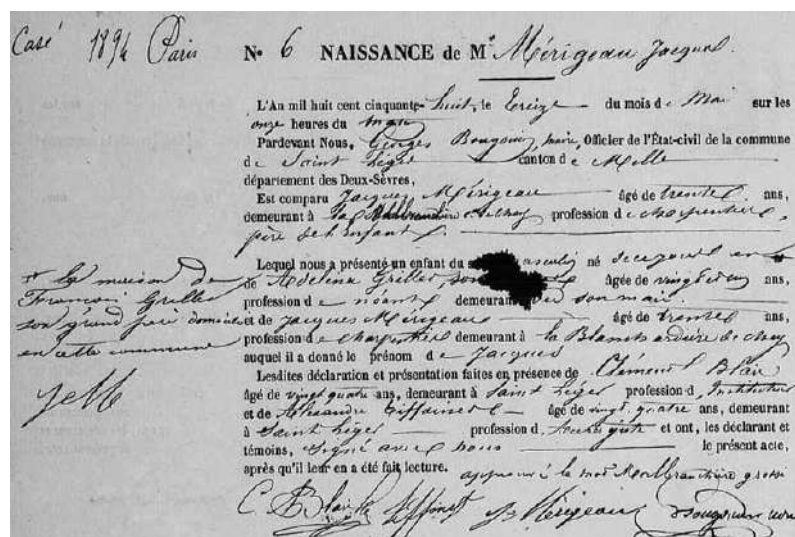 Casé 1894 Paris N° 6 NAISSANCE de M.r Mérigeau Jacques.
L'An mil huit cent cinquante-huit, le treize du mois de Mai sur les
onze heures du
Pardevant Nous, Georges Bougouin, maire, Officier de l'État-civil de la commune
de Saint Léger canton de Melle
département des Deux-Sèvres,
Est comparu Jacques Mérigeau âgé de trente ans,
demeurant à la profession de charpentier,
père de l'Enfant.
Lequel nous a présenté un enfant du masculin né ce jour en la
de Adeleine Grillet, son âgée de vingt ans,
profession de néant demeurant son mari.
et de Jacques Mérigeau âgé de trente ans,
profession de charpentier demeurant à la Blanchardière de
auquel il a donné le prénom de Jacques
Lesdites déclaration et présentation faites en présence de Clément Blais
âgé de vingt quatre ans, demeurant à Saint Léger profession d'Instituteur
et de Alexandre âgé de vingt quatre ans, demeurant
à Saint Léger profession d et ont, les déclarant et
témoins, signé avec nous le présent acte,
après qu'il leur en a été fait lecture.
approuvé le mot
+ la maison de
François Grillet
son grand père domicilié
en cette commune
C. Blais Mérigeau Bougouin